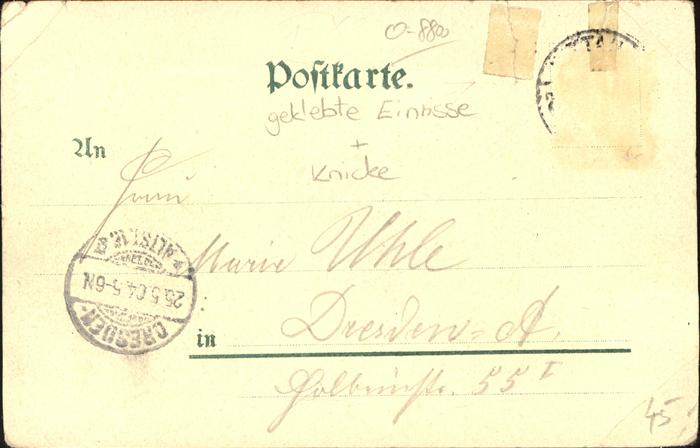 0-8800
Postkarte.
geklebte Einrisse
+
Knicke
An
Marie Uhle
in Dresden=A.
55 I
45
DRESDEN-
25.5.04.5-6N
* ALTST. 16.